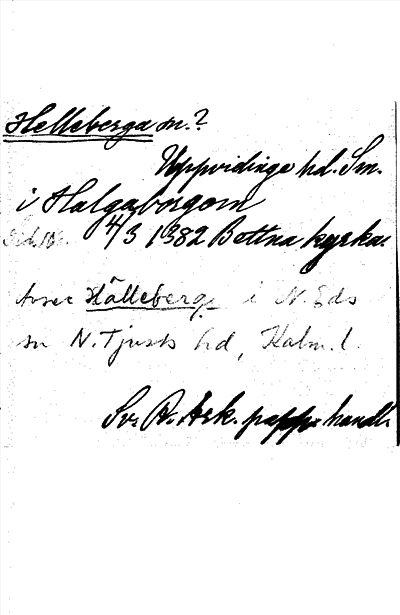 Helleberga sn.?
Uppvidinge hd. Sm.
i Halgaborgom
4/3 1382 Bettna kyrka.
Hälleberga i N. Eds
sn N. Tjusts hd, Kalm. l.
Sv. R. Ark. papp. handl.